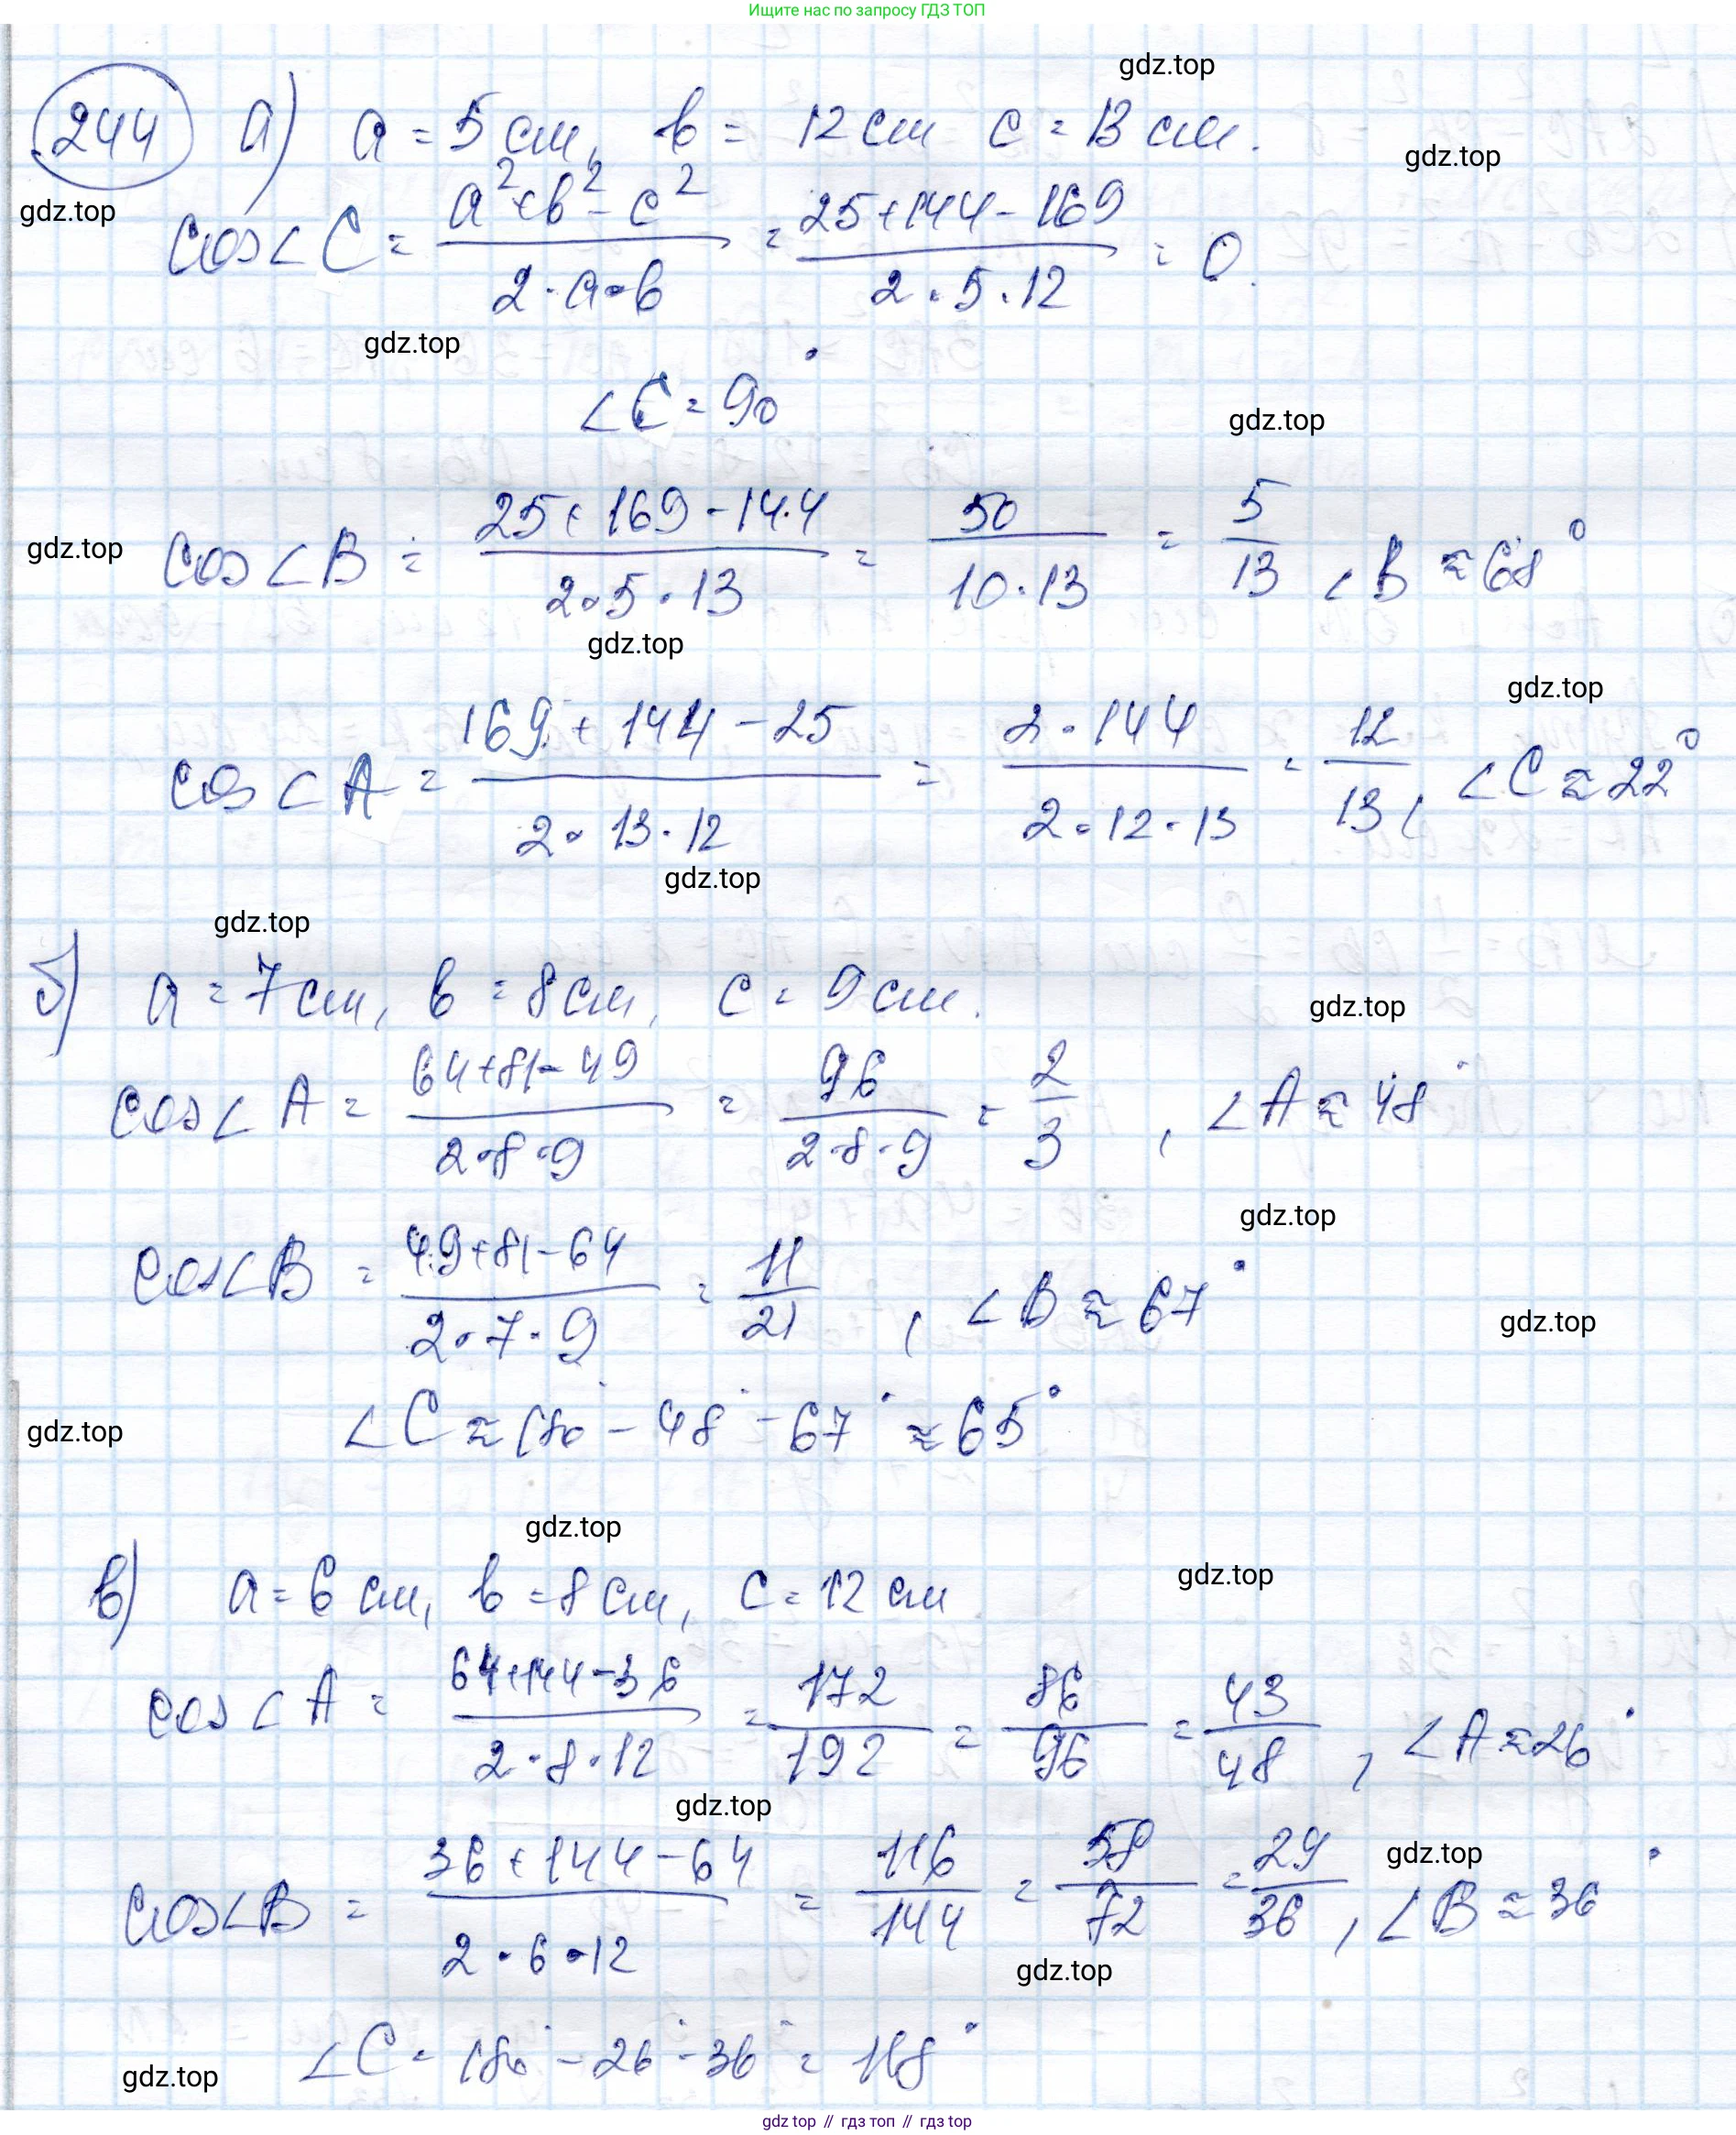 Ищите нас по запросу ГДЗ ТОП
gdz.top
244 а) a = 5 см, b = 12 см c = 13 см.
gdz.top
gdz.top
cos∠C = (a² + b² - c²)/(2·a·b) = (25+144-169)/(2·5·12) = 0.
gdz.top
∠C = 90°
gdz.top
cos∠B = (25+169-144)/(2·5·13) = 50/(10·13) = 5/13 ∠B ≈ 68°
gdz.top
gdz.top
gdz.top
cos∠A = (169+144-25)/(2·13·12) = (2·144)/(2·12·13) = 12/13, ∠C ≈ 22°
gdz.top
gdz.top
б) a = 7 см, b = 8 см, c = 9 см.
gdz.top
cos∠A = (64+81-49)/(2·8·9) = 96/(2·8·9) = 2/3, ∠A ≈ 48°
gdz.top
cos∠B = (49+81-64)/(2·7·9) = 11/21, ∠B ≈ 67°
gdz.top
∠C ≈ 180° - 48° - 67° ≈ 65°
gdz.top
gdz.top
в) a = 6 см, b = 8 см, c = 12 см
gdz.top
cos∠A = (64+144-36)/(2·8·12) = 172/192 = 86/96 = 43/48, ∠A ≈ 26°
gdz.top
cos∠B = (36+144-64)/(2·6·12) = 116/144 = 58/72 = 29/36, ∠B ≈ 36°
gdz.top
gdz.top
∠C = 180° - 26° - 36° = 118°
gdz.top
gdz top // гдз топ // gdz top